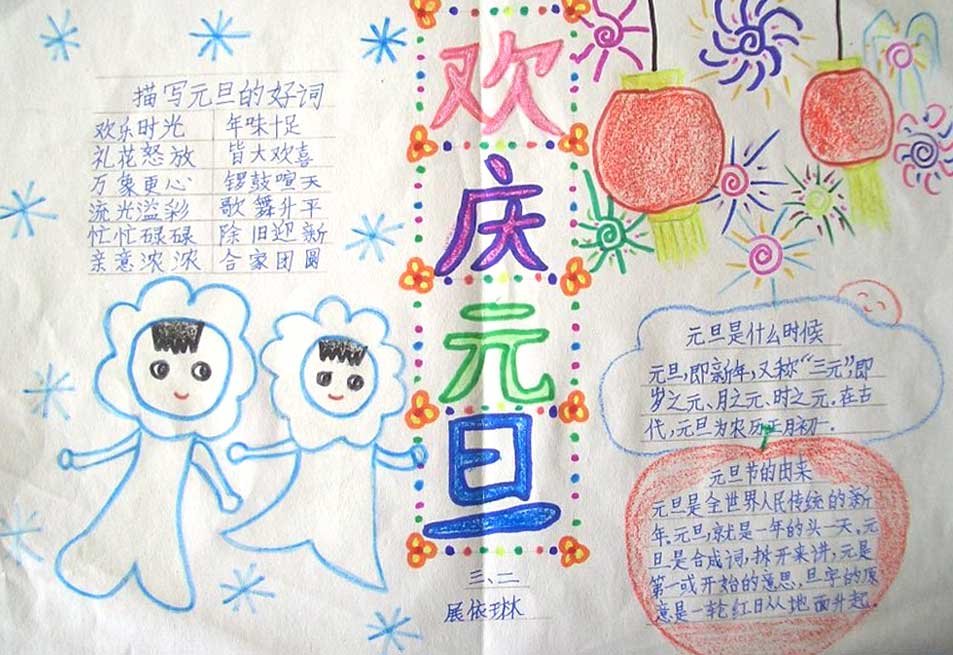 描写元旦的好词
欢乐时光 年味十足
礼花怒放 皆大欢喜
万象更心 锣鼓喧天
流光溢彩 歌舞升平
忙忙碌碌 除旧迎新
亲意浓浓 合家团圆
欢
庆
元
旦
三、二
展依琳
元旦是什么时候
元旦,即新年,又称“三元”,即
岁之元、月之元、时之元。在古
代,元旦为农历正月初一。
元旦节的由来
元旦是全世界人民传统的新
年。元旦,就是一年的头一天。元
旦是合成词,拆开来讲,元是
第一或开始的意思,旦字的原
意是一轮红日从地面升起。